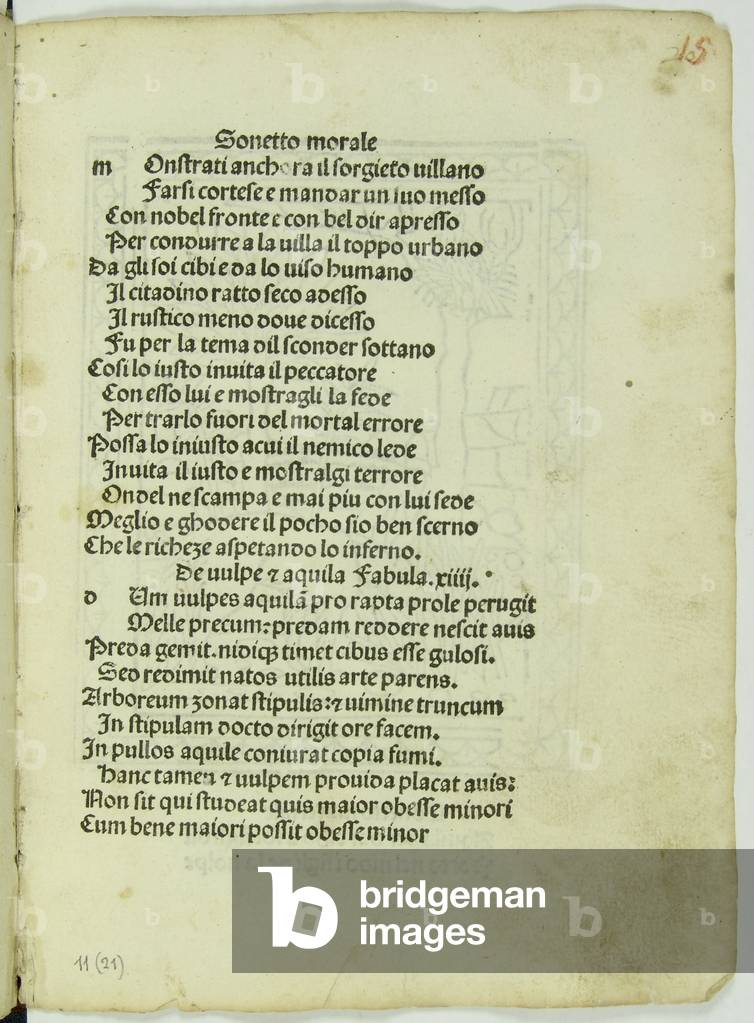 15
Sonetto morale
m Onſtrati anchora il ſorgieto uillano
Farſi corteſe e mandar un ſuo meſſo
Con nobel fronte e con bel dir apreſſo
Per condurre a la uilla il toppo urbano
Da gli ſoi cibi e da lo uiſo humano
Il citadino ratto ſeco adeſſo
Il ruſtico meno doue diceſſo
Fu per la tema dil ſconder ſottano
Coſi lo iuſto inuita il peccatore
Con eſſo lui e moſtragli la fede
Per trarlo fuori del mortal errore
Poſſa lo iniuſto acui il nemico lede
Inuita il iuſto e moſtralgi terrore
Ondel ne ſcampa e mai piu con lui ſede
Meglio e ghodere il pocho ſio ben ſcerno
Che le richeze aſpetando lo inferno.
De uulpe ⁊ aquila Fabula.xiiij.
d Um uulpes aquilã pro rapta prole perugit
Melle precum: predam reddere neſcit auis
Preda gemit. nidiqꝫ timet cibus eſſe guloſi.
Sed redimit natos utilis arte parens.
Arboreum zonat ſtipulis: ⁊ uimine truncum
In ſtipulam docto dirigit ore facem.
In pullos aquile coniurat copia fumi.
Hanc tamen ⁊ uulpem prouida placat auis:
Non ſit qui ſtudeat quis maior obeſſe minori
Cum bene maiori poſſit obeſſe minor
11 (21)
b bridgeman images